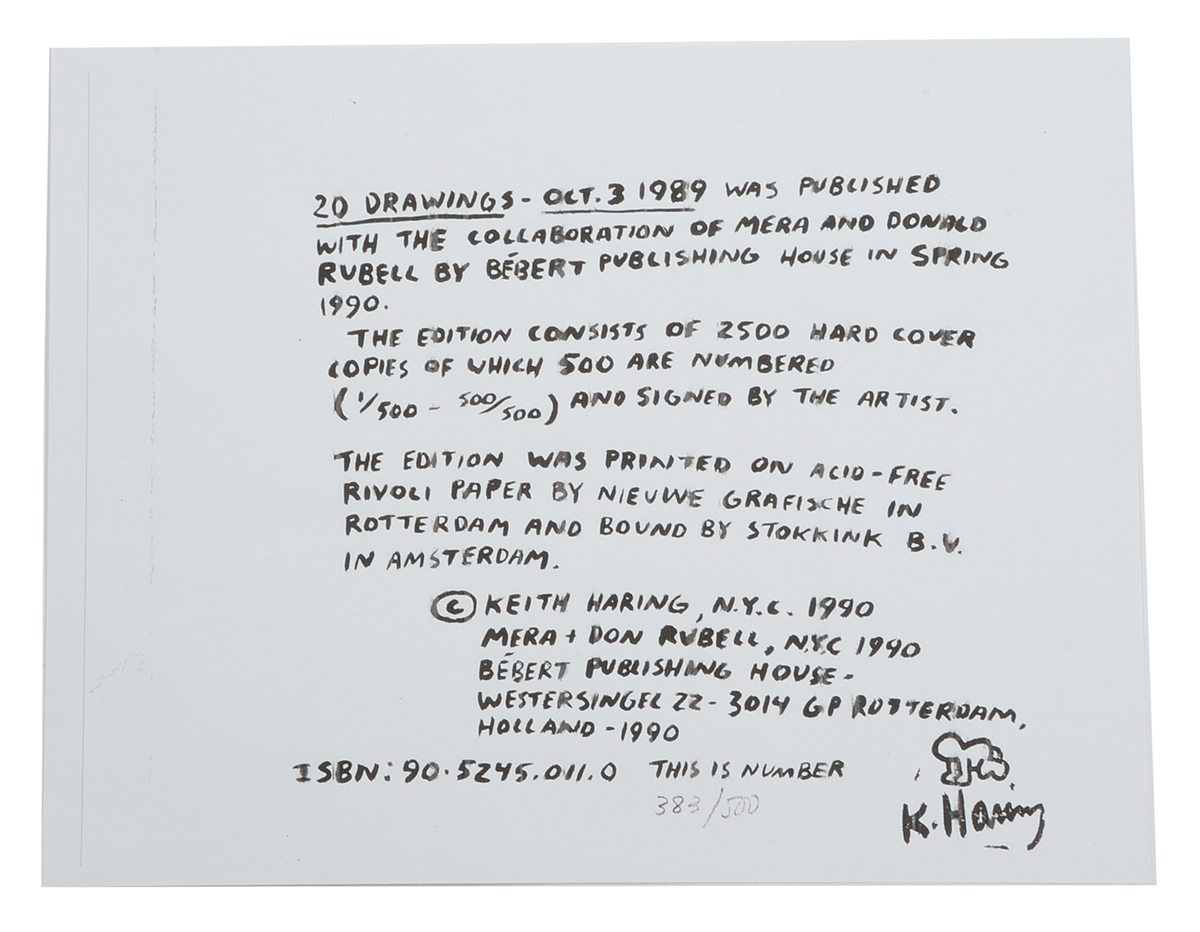 20 DRAWINGS - OCT. 3 1989 WAS PUBLISHED
WITH THE COLLABORATION OF MERA AND DONALD
RUBELL BY BÉBERT PUBLISHING HOUSE IN SPRING
1990.
THE EDITION CONSISTS OF 2500 HARD COVER
COPIES OF WHICH 500 ARE NUMBERED
(1/500 - 500/500) AND SIGNED BY THE ARTIST.
THE EDITION WAS PRINTED ON ACID-FREE
RIVOLI PAPER BY NIEUWE GRAFISCHE IN
ROTTERDAM AND BOUND BY STOKKINK B.V.
IN AMSTERDAM.
© KEITH HARING, N.Y.C. 1990
MERA + DON RUBELL, NYC 1990
BÉBERT PUBLISHING HOUSE -
WESTERSINGEL 22 - 3014 GP ROTTERDAM,
HOLLAND - 1990
ISBN: 90.5245.011.0 THIS IS NUMBER
383/500
K. Haring